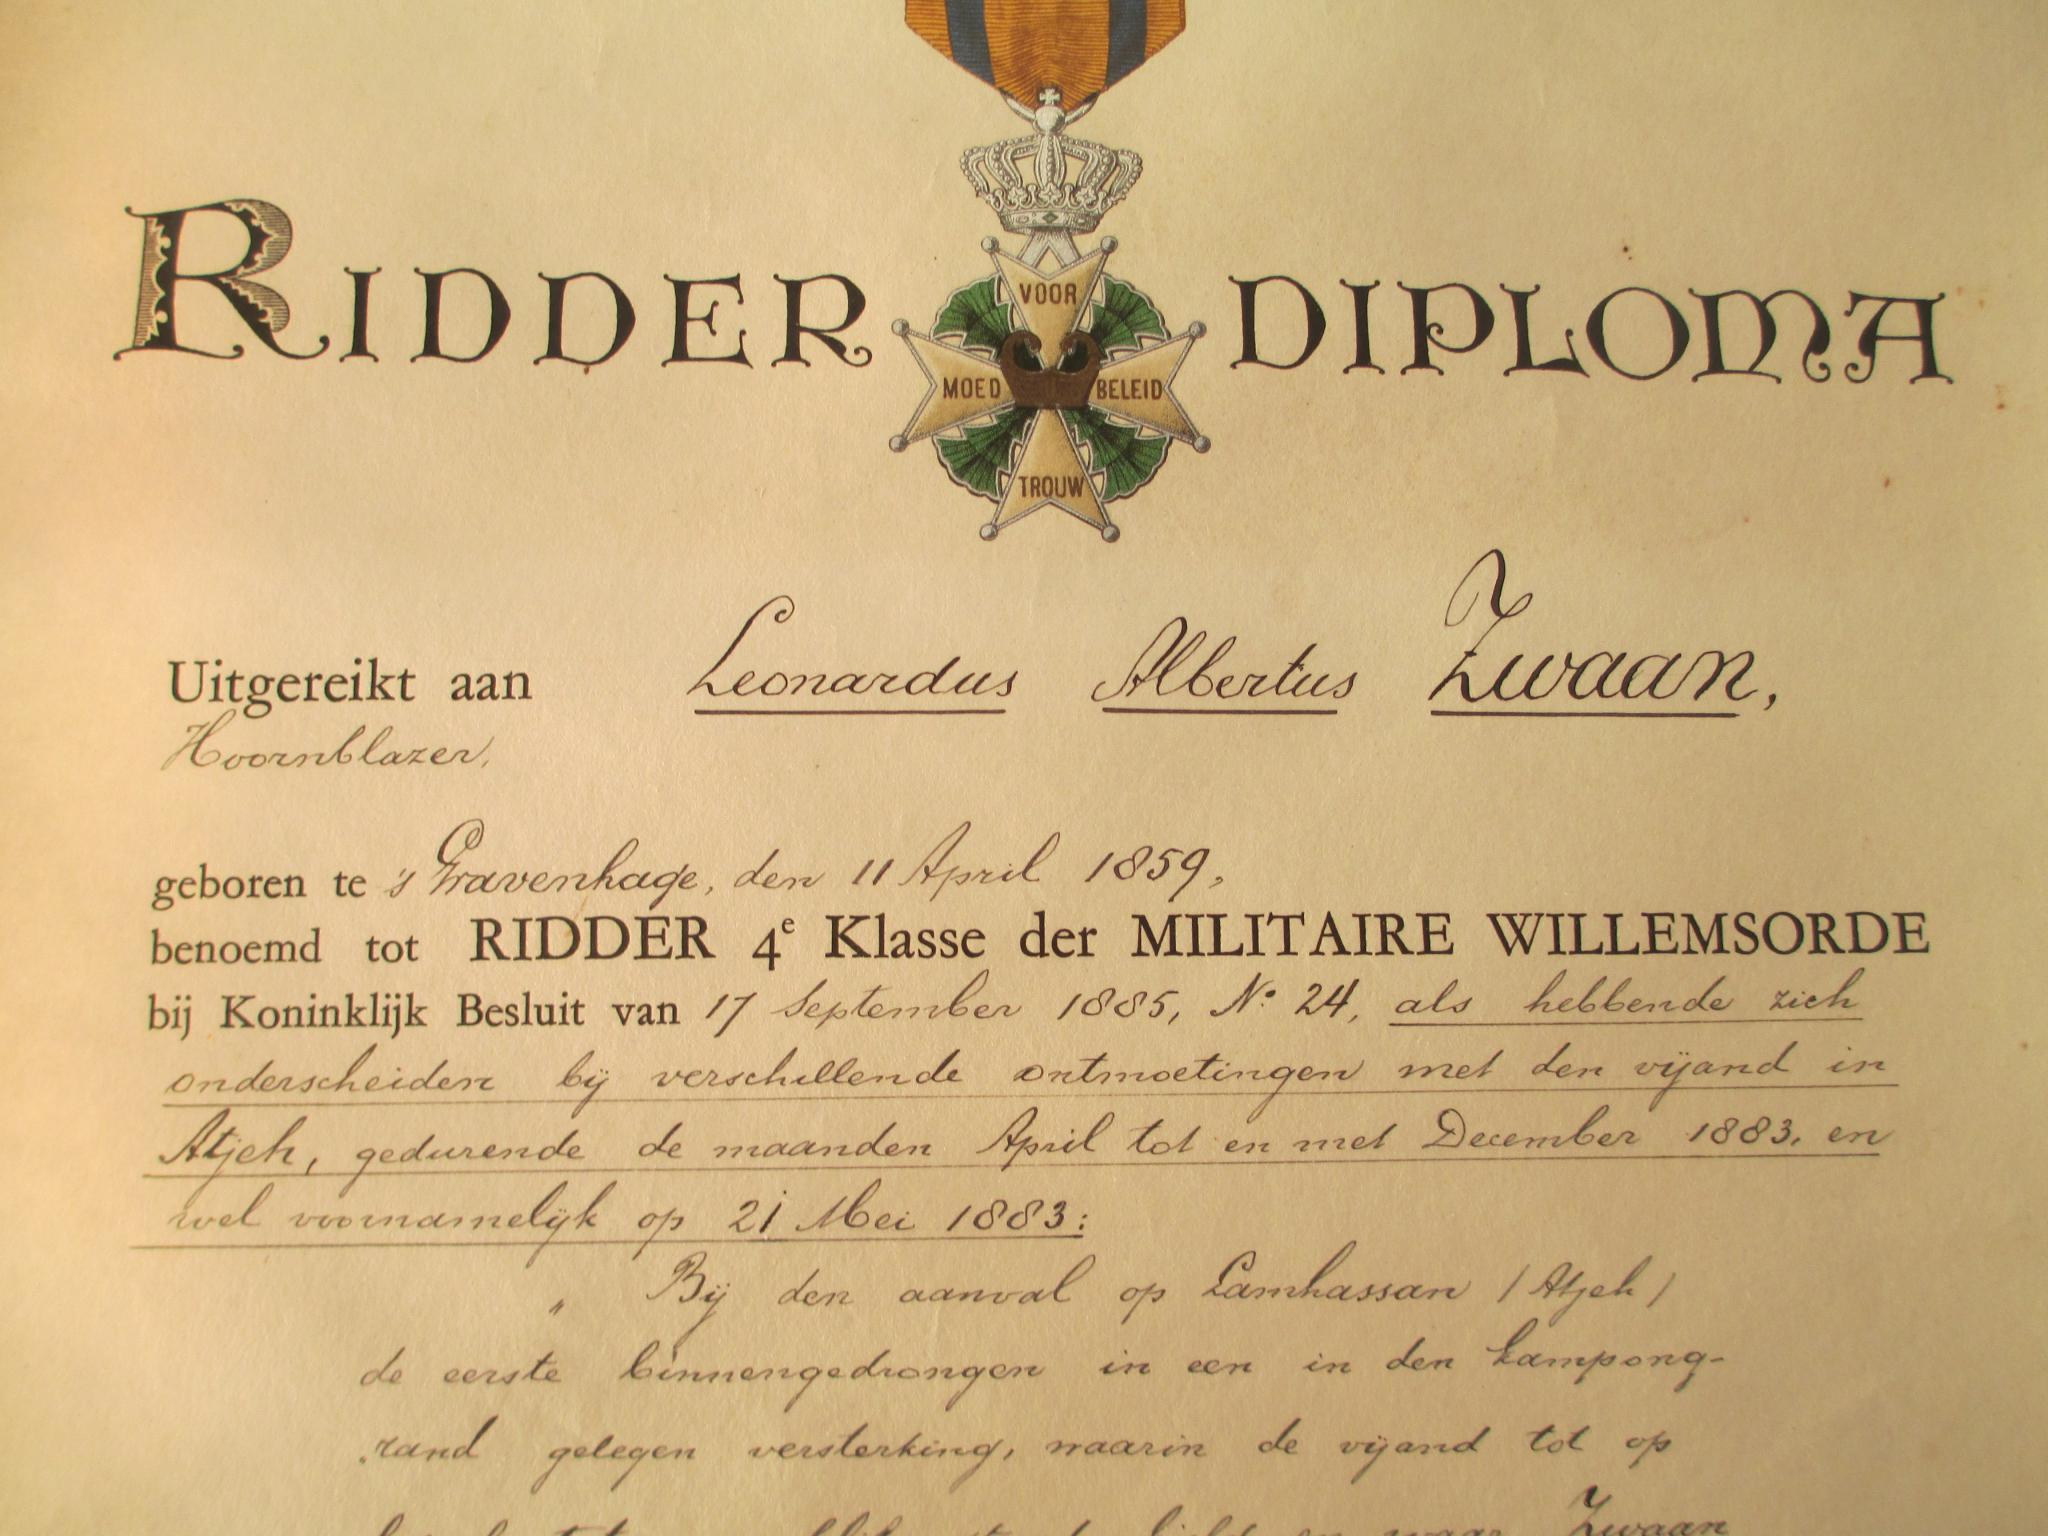 RIDDER DIPLOMA
VOOR
MOED BELEID
TROUW
Uitgereikt aan Leonardus Albertus Zwaan,
Hoornblazer,
geboren te 's Gravenhage, den 11 April 1859,
benoemd tot RIDDER 4e Klasse der MILITAIRE WILLEMSORDE
bij Koninklijk Besluit van 17 September 1885, No. 24, als hebbende zich
onderscheiden bij verschillende ontmoetingen met den vijand in
Atjeh, gedurende de maanden April tot en met December 1883, en
wel voornamelijk op 21 Mei 1883:
„ Bij den aanval op Lamhassan (Atjeh)
de eerste binnengedrongen in een in den kampong-
rand gelegen versterking, waarin de vijand tot op
Zwaan